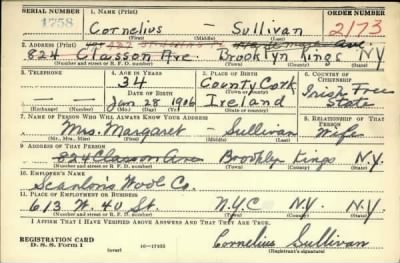 SERIAL NUMBER 1. NAME (Print) ORDER NUMBER
1758 Cornelius — Sullivan 2173
(First) (Middle) (Last)
2. ADDRESS (Print)
824 Classon Ave. Brooklyn Kings N.Y.
(Number and street or R. F. D. number) (Town) (County) (State)
3. TELEPHONE 4. AGE IN YEARS 5. PLACE OF BIRTH 6. COUNTRY OF CITIZENSHIP
34 County Cork Irish Free
DATE OF BIRTH (Town or county)
Jan 28 1906 Ireland State
(Exchange) (Number) (Mo.) (Day) (Yr.) (State or country)
7. NAME OF PERSON WHO WILL ALWAYS KNOW YOUR ADDRESS 8. RELATIONSHIP OF THAT PERSON
Mrs. Margaret — Sullivan Wife
(Mr., Mrs., Miss) (First) (Middle) (Last)
9. ADDRESS OF THAT PERSON
824 Classon Ave Brooklyn Kings N.Y.
(Number and street or R. F. D. number) (Town) (County) (State)
10. EMPLOYER'S NAME
Scanlon's Wool Co.
11. PLACE OF EMPLOYMENT OR BUSINESS
613 W. 40 St. N.Y.C. N.Y. N.Y.
(Number and street or R. F. D. number) (Town) (County) (State)
I AFFIRM THAT I HAVE VERIFIED ABOVE ANSWERS AND THAT THEY ARE TRUE.
REGISTRATION CARD
D. S. S. Form 1 (over) 16—17105 Cornelius Sullivan
(Registrant's signature)